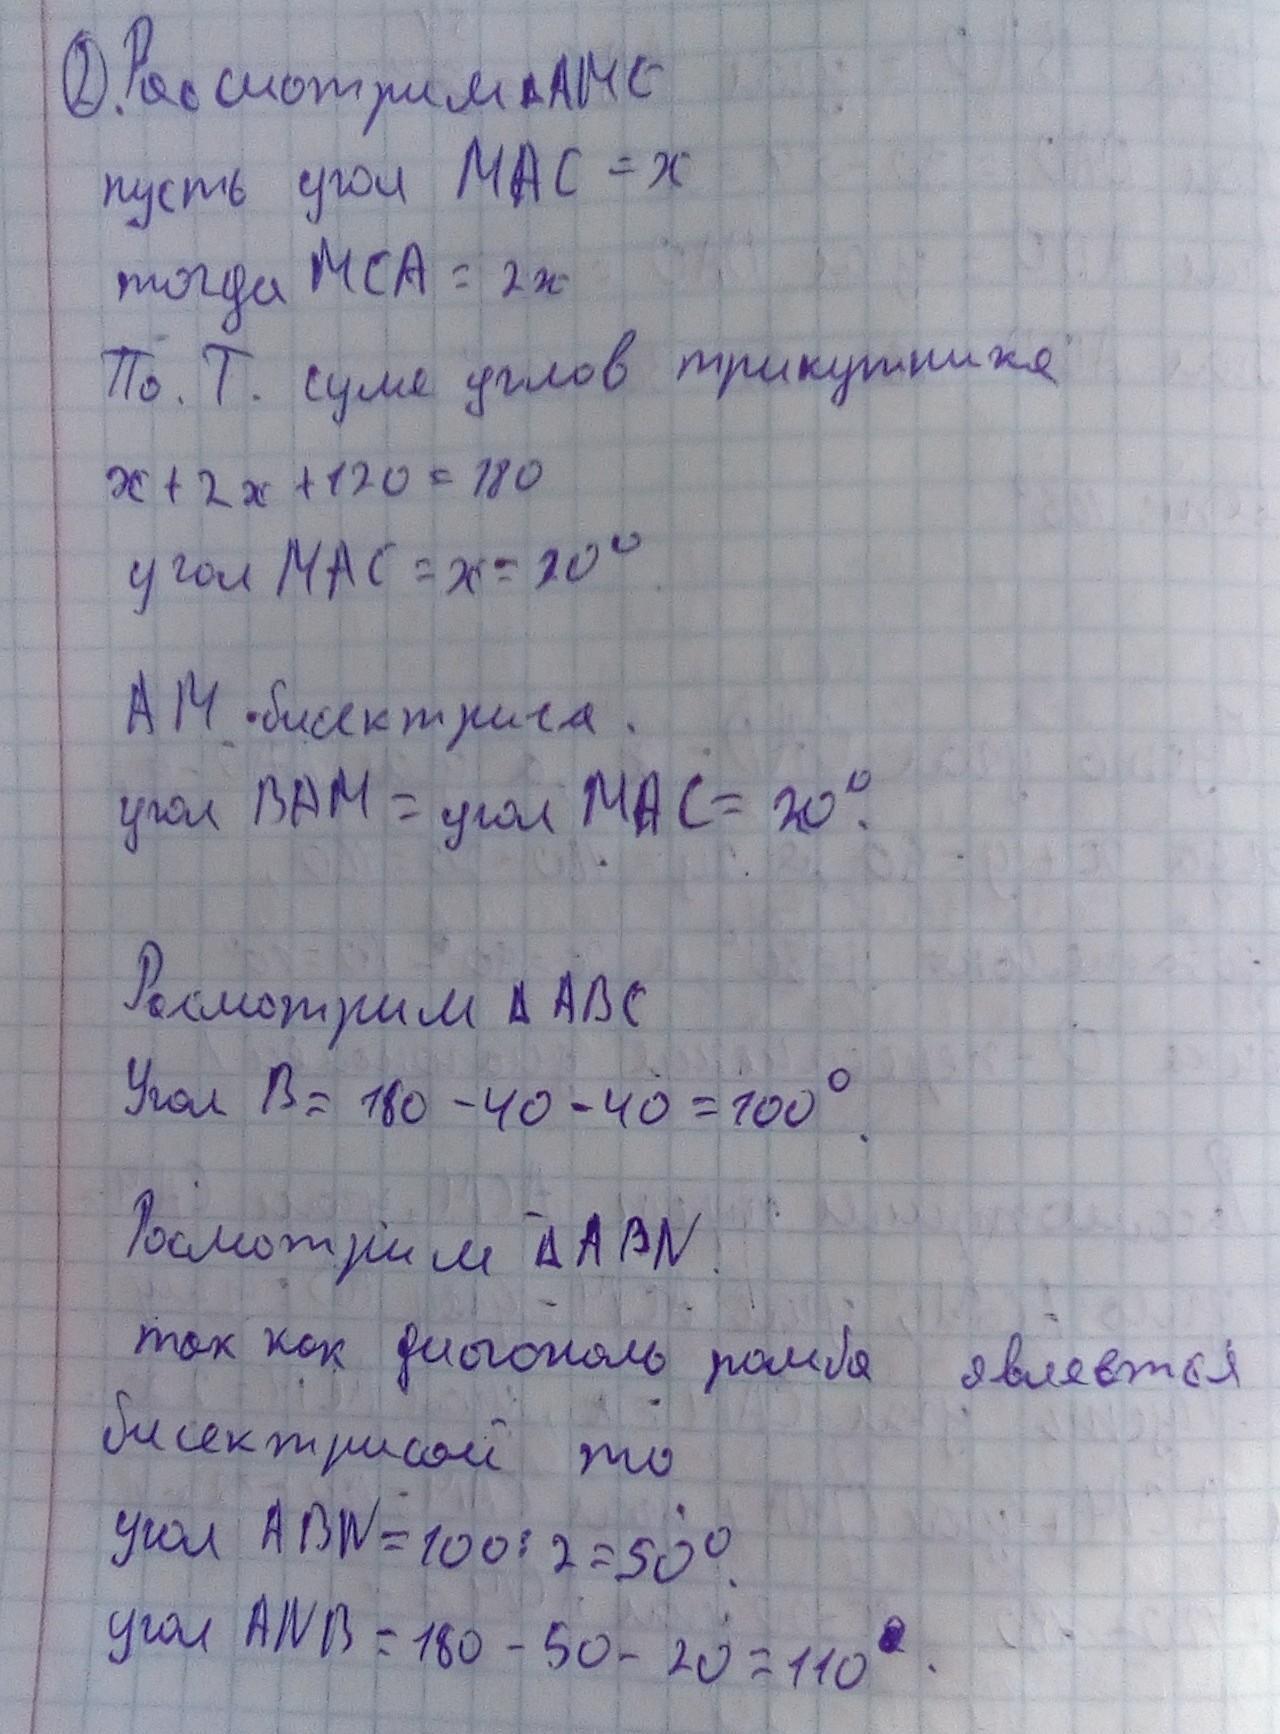 ②. Рассмотрим ΔAMC
пусть угол MAC = x
тогда MCA = 2x
По. Т. суме углов трикутника
x + 2x + 120 = 180
угол MAC = x = 20°
AM - бисектриса.
угол BAM = угол MAC = 20°.
Росмотрим ΔABC
Угол B = 180 - 40 - 40 = 100°.
Росмотрим ΔABN.
так как диогональ ромба является
бисектрисой то
угол ABN = 100 : 2 = 50°.
угол ANB = 180 - 50 - 20 = 110°.